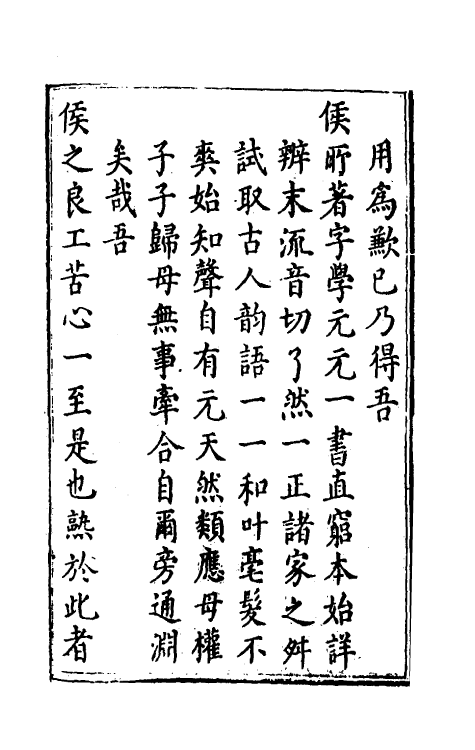 用爲歉已乃得吾
侯所著字學元元一書直窮本始詳
辨末流音切了然一正諸家之舛
試取古人韵語一一和叶毫髮不
爽始知聲自有元天然類應母權
子子歸母無事牽合自爾旁通淵
矣哉吾
侯之良工苦心一至是也熟於此者